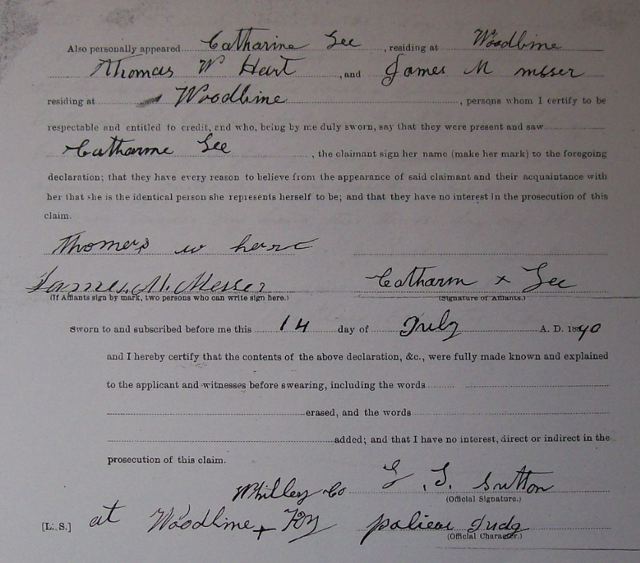 Also personally appeared Catharine Lee , residing at Woodbine
Thomas W Hart , and James M messer
residing at Woodbine , persons whom I certify to be
respectable and entitled to credit, and who, being by me duly sworn, say that they were present and saw
Catharine Lee , the claimant sign her name (make her mark) to the foregoing
declaration; that they have every reason to believe from the appearance of said claimant and their acquaintance with
her that she is the identical person she represents herself to be; and that they have no interest in the prosecution of this
claim.
Thomas w hart
James M. Messer Catharin x Lee
(If Affiants sign by mark, two persons who can write sign here.) (Signature of Affiants.)
Sworn to and subscribed before me this 14 day of July A. D. 1890
and I hereby certify that the contents of the above declaration, &c., were fully made known and explained
to the applicant and witnesses before swearing, including the words
erased, and the words
added; and that I have no interest, direct or indirect in the
prosecution of this claim.
Whitley Co
Sutton
(Official Signature.)
[L. S.] at Woodbine Ky police Judg
(Official Character.)